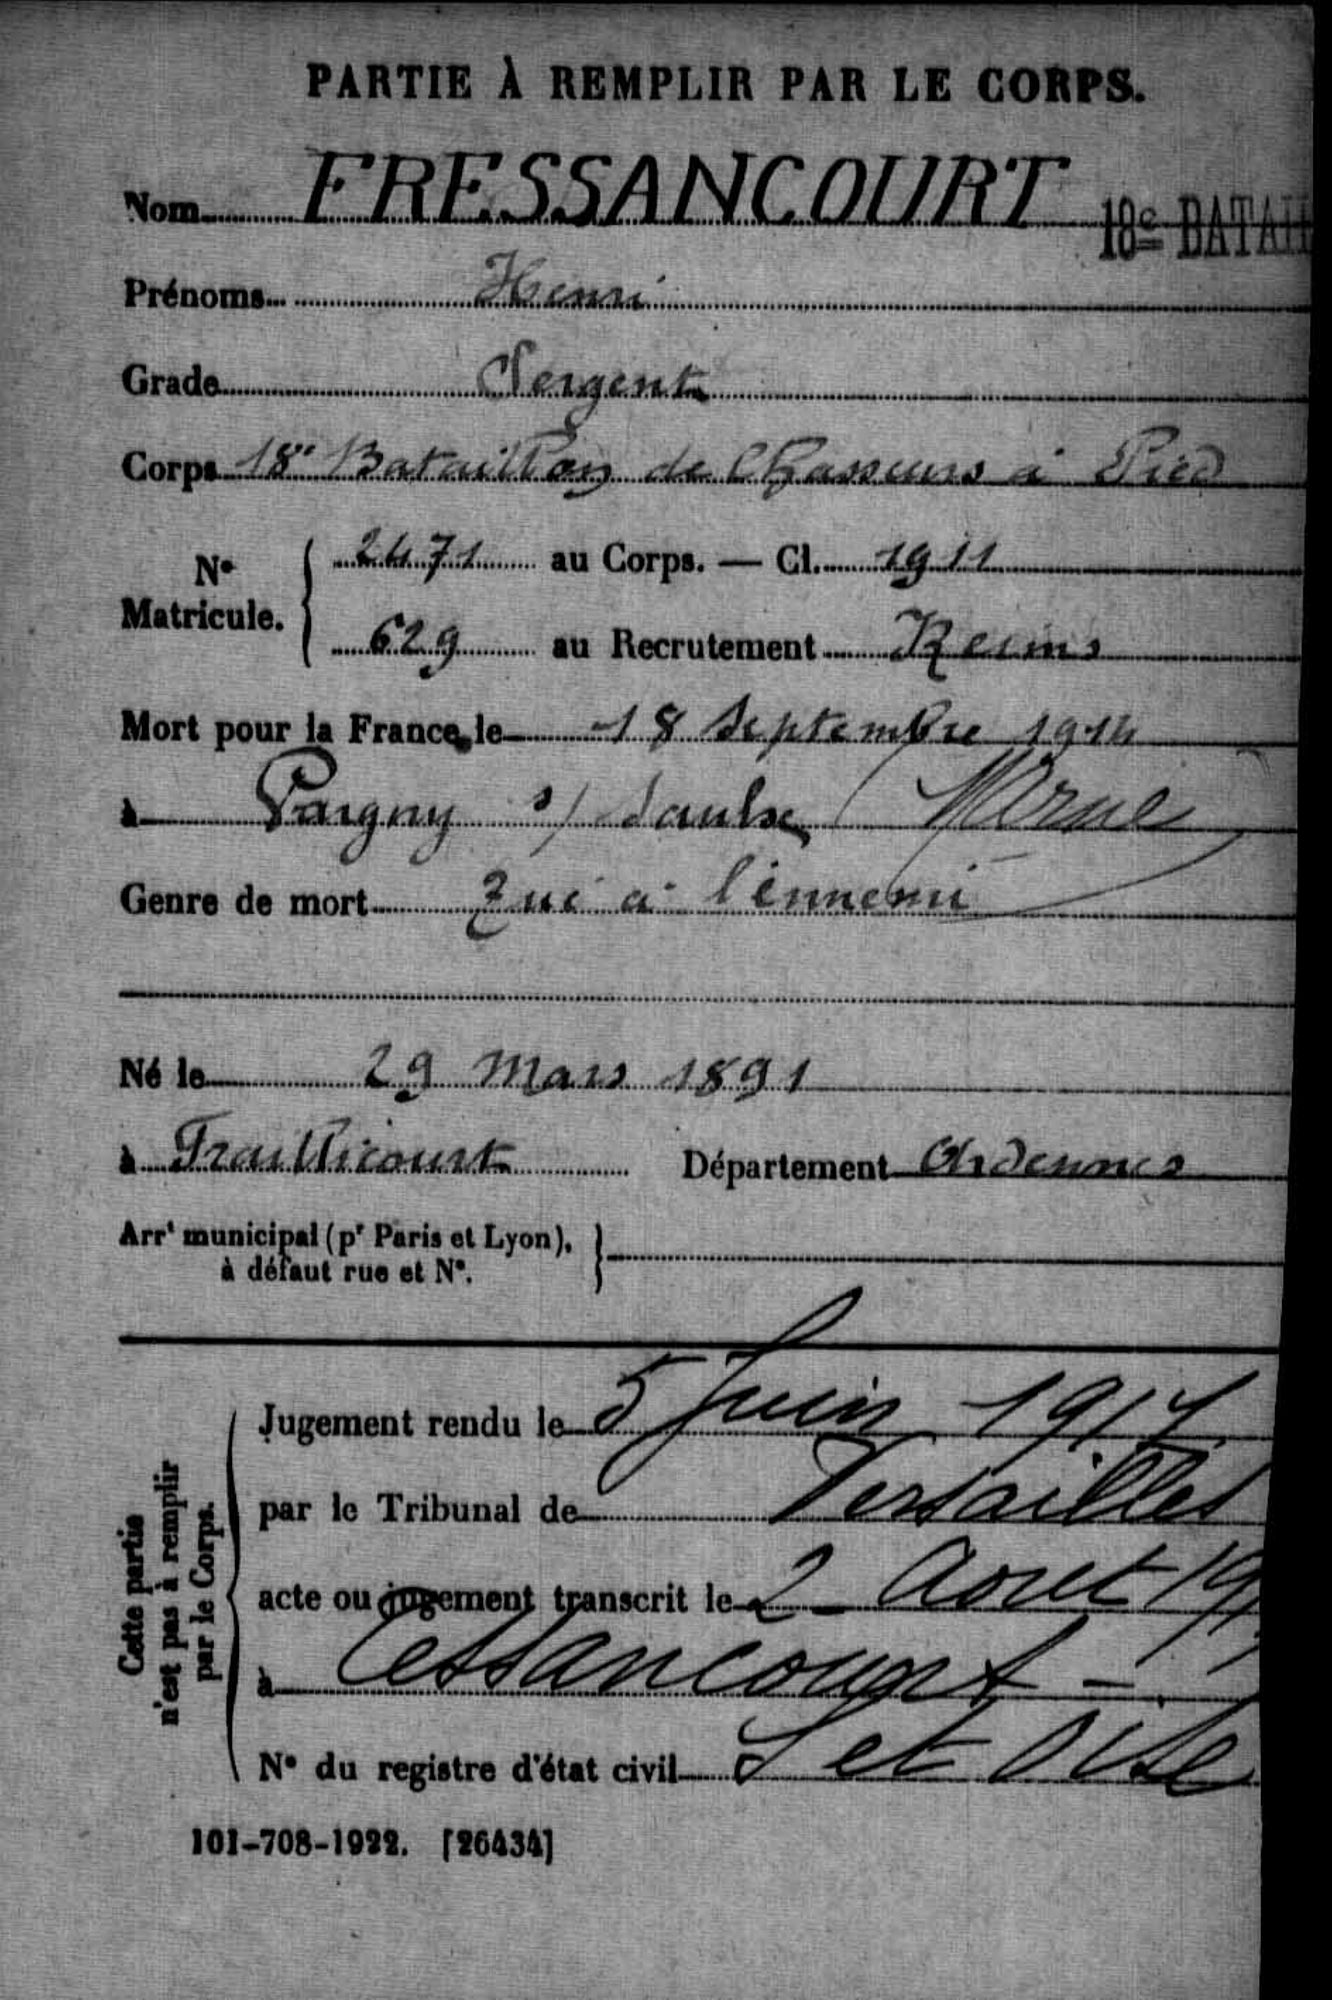 PARTIE À REMPLIR PAR LE CORPS.
Nom FRESSANCOURT
18e BATAIL
Prénoms Henri
Grade Sergent
Corps 18e Bataillon de Chasseurs à Pied
N° Matricule. { 2471 au Corps. — Cl. 1911
629 au Recrutement Reims
Mort pour la France le 18 septembre 1914
à Pargny s/ Saulx (Marne
Genre de mort Tué à l'ennemi
Né le 29 Mars 1891
à Fraillicourt Département Ardennes
Arrt municipal (pr Paris et Lyon), à défaut rue et N°. }
Cette partie n'est pas à remplir par le Corps.
Jugement rendu le 5 Juin 1917
par le Tribunal de Versailles
acte ou jugement transcrit le 2 Aout 191
à Tessancourt
N° du registre d'état civil S et Oise
101-708-1922. [26434]